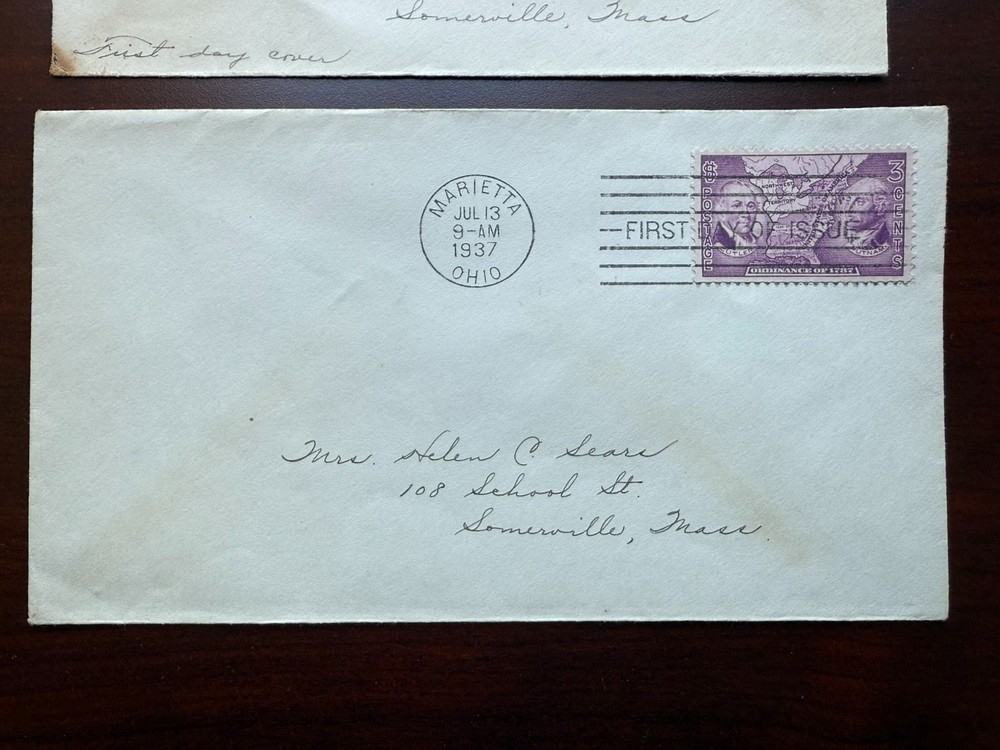 Somerville, Mass
First day cover
MARIETTA
JUL 13
9-AM
1937
OHIO
FIRST DAY OF ISSUE
POSTAGE
3 CENTS
NORTHWEST
TERRITORY
CUTLER
PUTNAM
ORDINANCE OF 1787
Mrs. Helen C. Sears
108 School St.
Somerville, Mass.